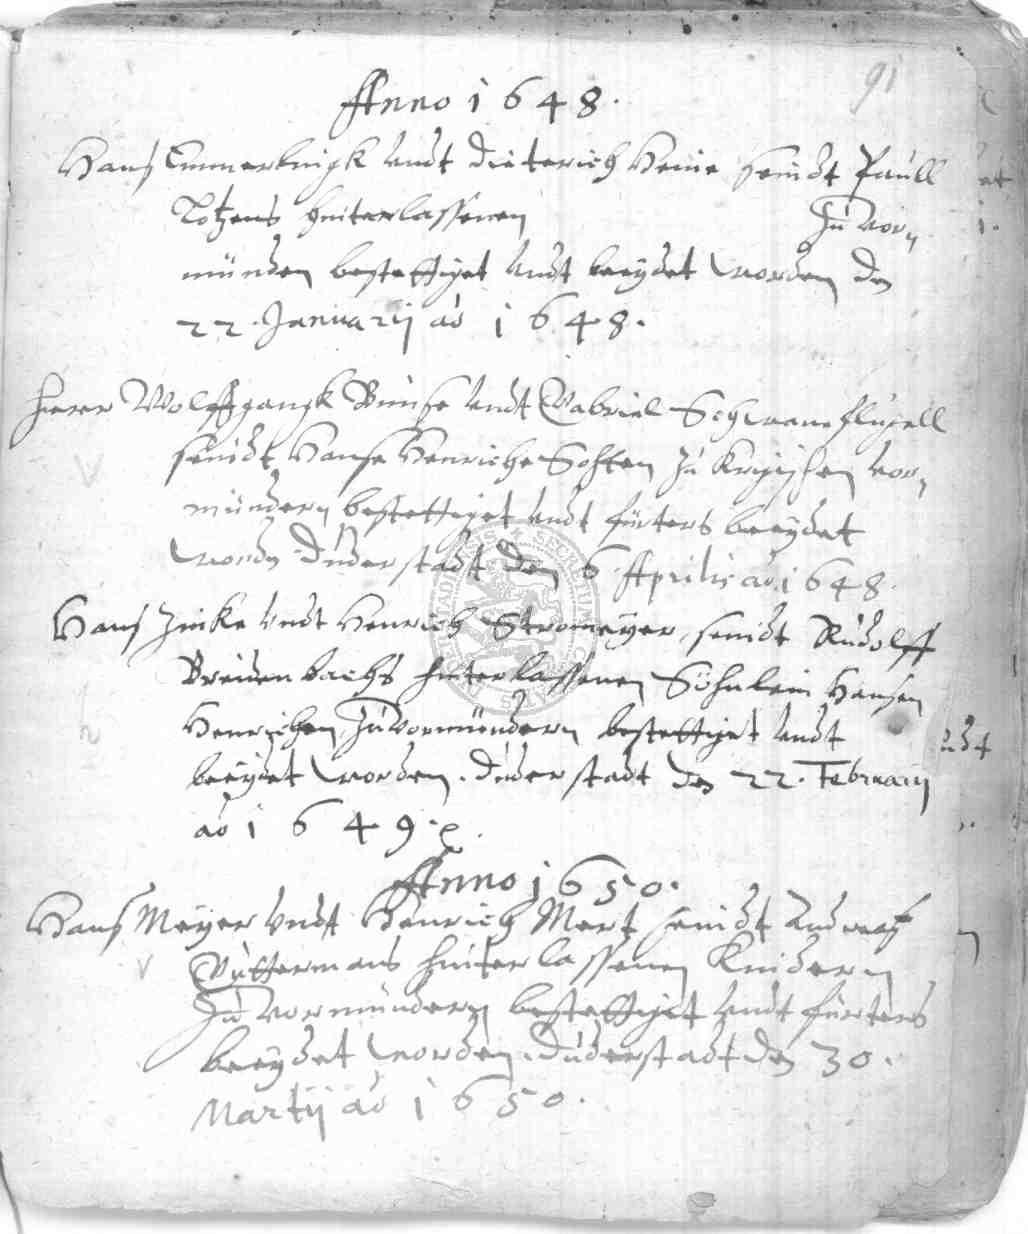 91
Anno 1648.
Hans Emmerlingk undt Dieterich Heine seindt Paull
Lotzens hinterlassenen zu vor-
münden bestettiget undt beeydet worden den
22. Januarij ao 1648.
Herr Wolffgangk Bünse undt Gabriel Schwaneflügell
seindt Hanse Henriche Sohten zu vor-
mündern bestettiget undt fürters beeydet
worden Duderstadt den 6 Aprilis ao. 1648.
Hans Jinke undt Henrich Stromeyer, seindt Rudolff
Breidenbachs hinterlassenen Söhnlein Hansen
Henrichen zu vormündern bestettiget undt
beeydet worden. Duderstadt den 22. Februarij
ao 1649.
Anno 1650.
Hans Meyer undt Henrich Mert seindt Andreas
hinterlassenen Kindern
zu vormündern bestettiget undt fürters
beeydet worden. Duderstadt den 30.
Martij ao 1650.